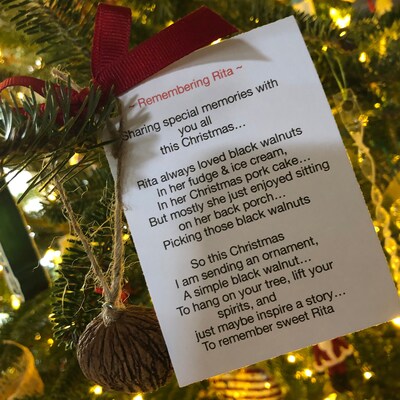 ~ Remembering Rita ~
Sharing special memories with
you all
this Christmas...
Rita always loved black walnuts
In her fudge & ice cream,
In her Christmas pork cake...
But mostly she just enjoyed sitting
on her back porch...
Picking those black walnuts
So this Christmas
I am sending an ornament,
A simple black walnut...
To hang on your tree, lift your
spirits, and
just maybe inspire a story...
To remember sweet Rita